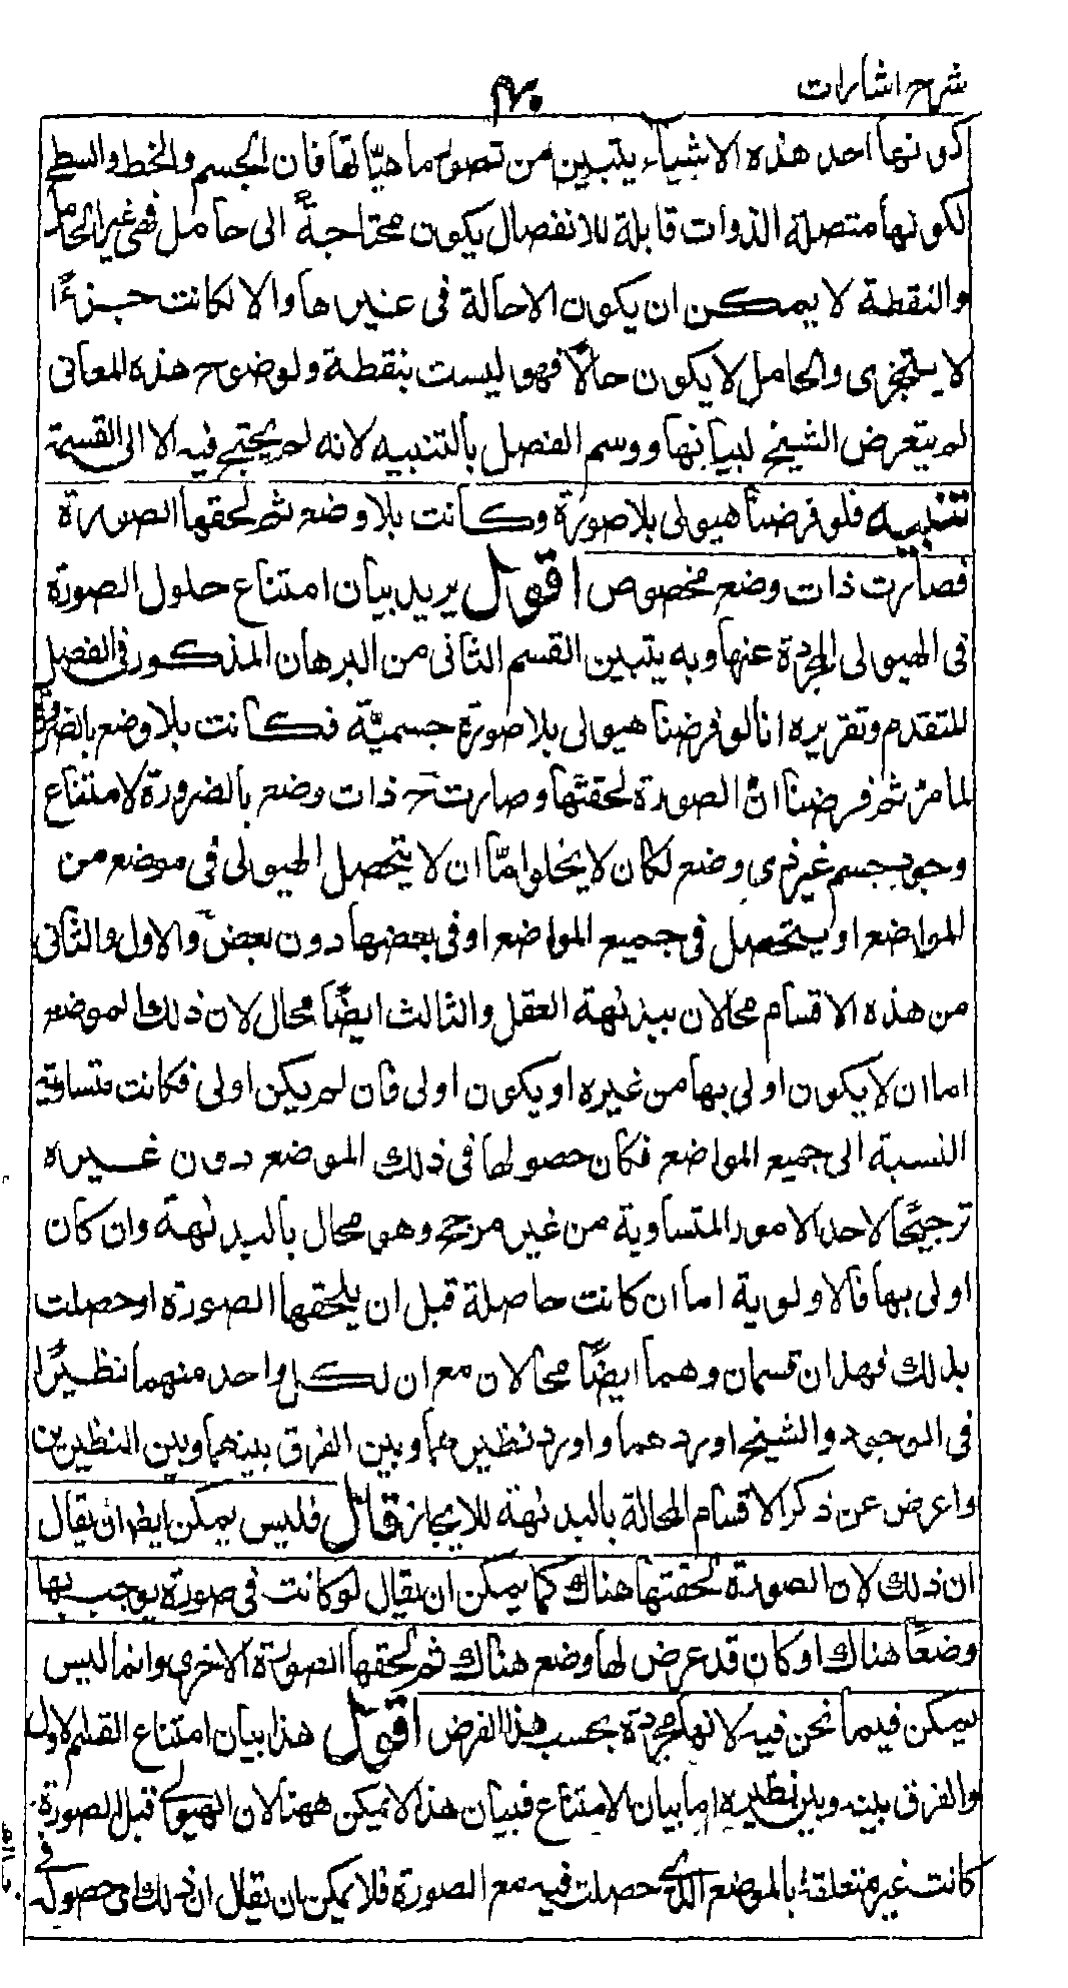 شرح اشارات
۴۰
كونها احد هذه الاشياء يتبين من تصور ماهياتها فان الجسم والخط والسطح
لكونها متصلة الذوات قابلة للانفصال يكون محتاجة الى حامل فهى غير الحامل
والنقطة لا يمكن ان يكون الا حالة فى غيرها والا لكانت جزءًا
لا يتجزى والحامل لا يكون حالًا فهو ليست بنقطة ولوضوح هذه المعانى
لم يتعرض الشيخ لبيانها ووسم الفصل بالتنبيه لانه لم يحتج فيه الا الى القسمة
تنبيه فلو فرضنا هيولى بلا صورة وكانت بلا وضع ثم لحقها الصورة
فصارت ذات وضع مخصوص اقول يريد بيان امتناع حلول الصورة
فى الهيولى المجردة عنها وبه يتبين القسم الثانى من البرهان المذكور فى الفصل
المتقدم وتقريره انا لو فرضنا هيولى بلا صورة جسميّة فكانت بلا وضع بالضرورة
لما مرّ ثم فرضنا انّ الصورة لحقتها وصارت ح ذات وضع بالضرورة لامتناع
وجود جسم غير ذى وضع لكان لا يخلو امّا ان لا يتحصل الهيولى فى موضع من
المواضع او يتحصل فى جميع المواضع او فى بعضها دون بعض والاول والثانى
من هذه الاقسام محالان ببديهة العقل والثالث ايضًا محال لان ذلك الموضع
اما ان لا يكون اولى بها من غيره او يكون اولى فان لم يكن اولى فكانت متساوية
النسبة الى جميع المواضع فكان حصولها فى ذلك الموضع دون غيره
ترجيحًا لاحد الامور المتساوية من غير مرجح وهو محال بالبديهة وان كان
اولى بها فالاولوية اما ان كانت حاصلة قبل ان يلحقها الصورة او حصلت
بذلك فهذان قسمان وهما ايضًا محالان مع ان لكل واحد منهما نظيرًا
فى الوجود والشيخ اوردهما واورد نظيرهما وبين الفرق بينهما وبين النظيرين
واعرض عن ذكر الاقسام المحالة بالبديهة للايجاز قال فليس يمكن ايضا ان يقال
ان ذلك لان الصورة لحقتها هناك كما يمكن ان يقال لو كانت فى صورة يوجب لها
وضعًا هناك او كان قد عرض لها وضع هناك ثم لحقها الصورة الاخرى وانما ليس
يمكن فيما نحن فيه لانها مجردة بحسب هذا الفرض اقول هذا بيان امتناع القسم الاول
والفرق بينه وبين نظيره اما بيان الامتناع فبيان هذا لا يمكن ههنا لان الهيولى قبل الصورة
كانت غير متعلقة بالموضع الذى حصلت فيه مع الصورة فلا يمكن ان يقال ان ذلك اى حصوله فى